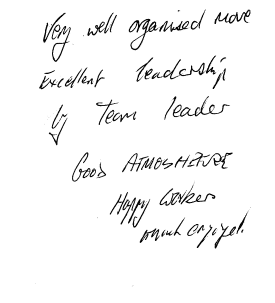 Very well organised move
Excellent leadership
by Team leader
Good ATMOSHERE
Happy workers
much enjoyed.